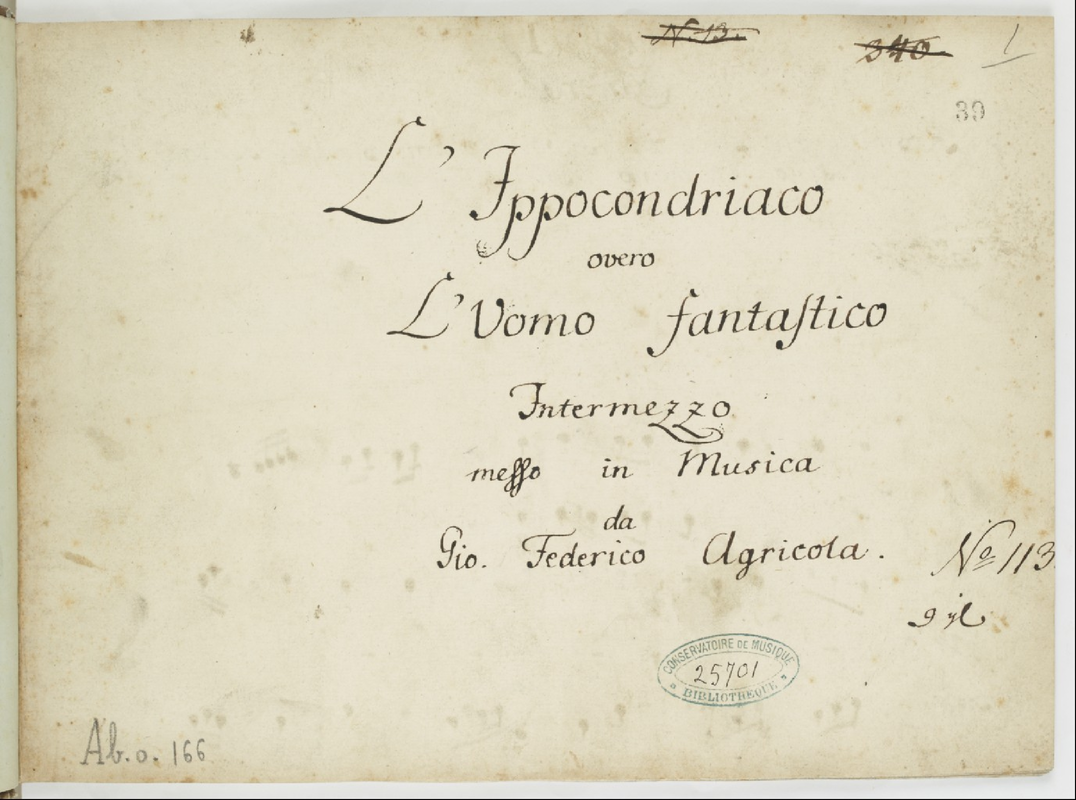 N. 13.
340
1
39
L' Ippocondriaco
overo
L'Vomo fantaſtico
Intermezzo
meſſo in Musica
da
Gio. Federico Agricola.
Nº 113
CONSERVATOIRE DE MUSIQUE
25701
BIBLIOTHEQUE
Ab. o. 166